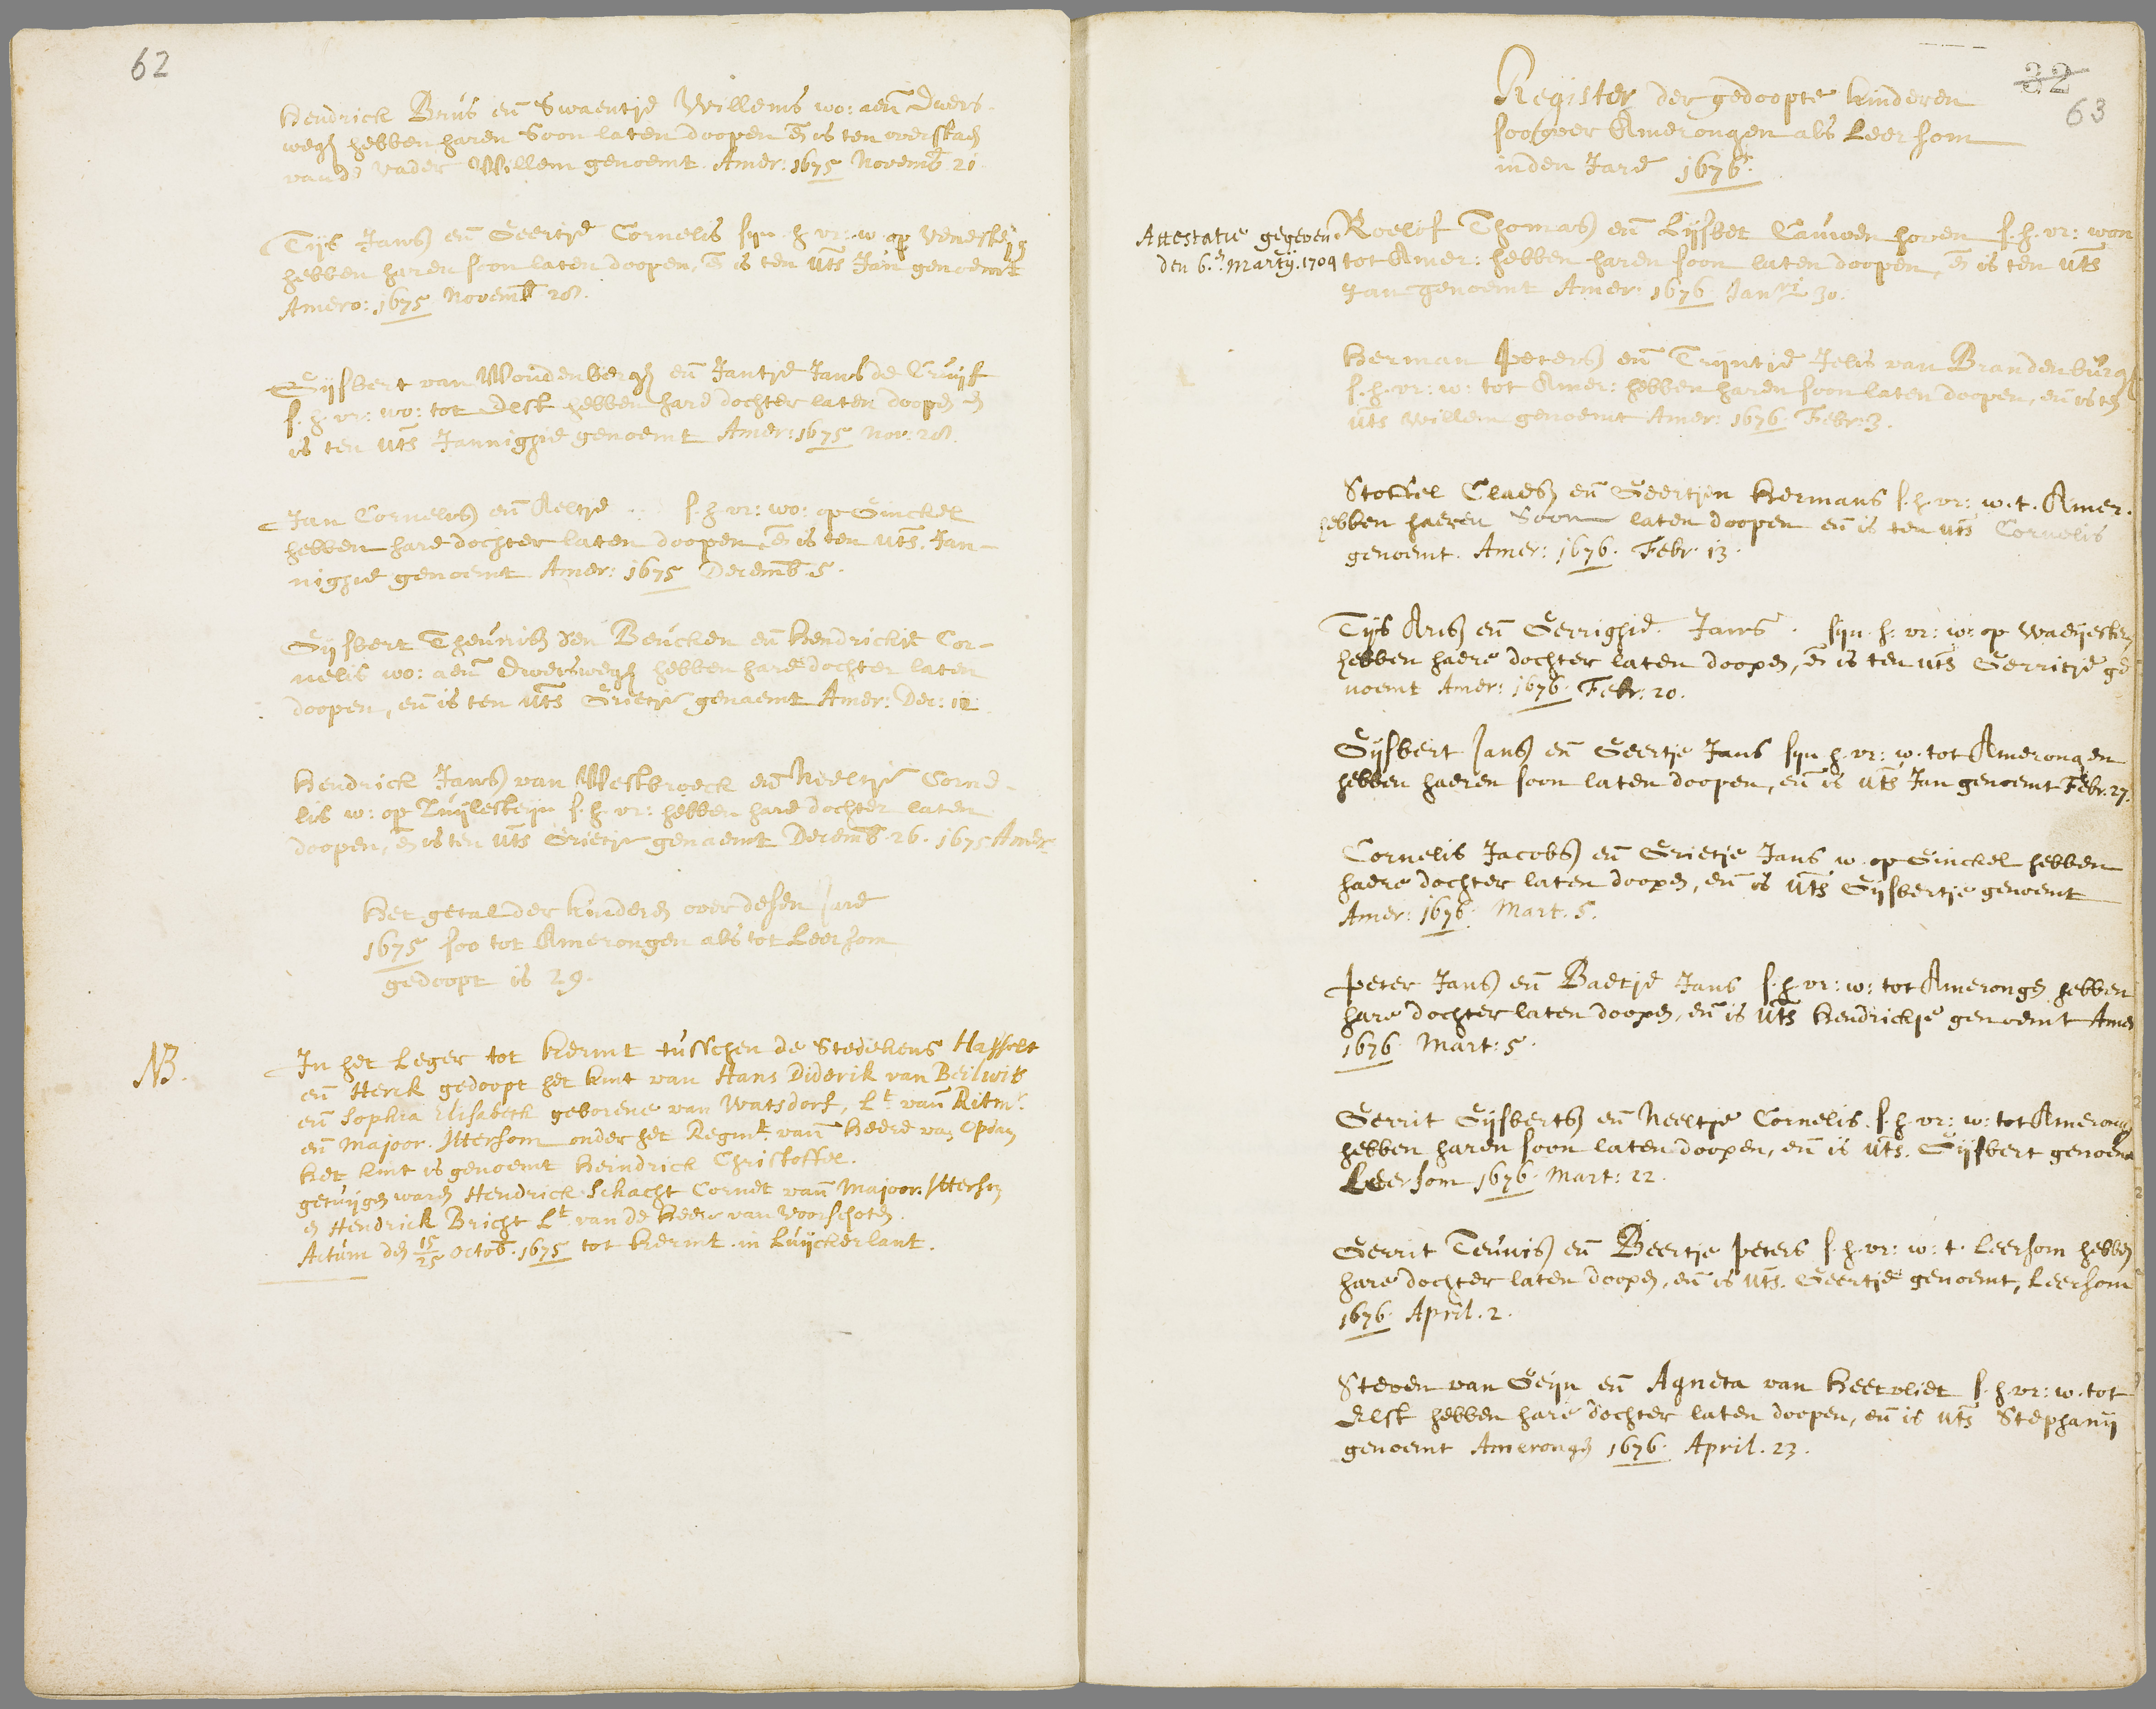 62
Hendrick Brus en Swaentje Willems wo: aen Dwers-
wegh hebben haren Soon laten doopen en is ten overstaen
vande vader Willem genoemt. Amer: 1675 Novemb. 21
Tijs Jans en Geertje Cornelis sijn h. vr: w. op
hebben haren soon laten doopen, en is ten uts Jan genoemt
Amero: 1675 Novemb 28.
Gijsbert van Woudenbergh en Jantje Jans de Cruijf
s. h. vr: wo: tot Elst hebben hare dochter laten doopen en
is ten uts Jannighje genoemt Amer: 1675 Nov: 28.
Jan Cornelis en Aeltje .. s. h. vr: wo: op Ginckel
hebben hare dochter laten doopen, en is ten uts. Jan-
nighje genoemt Amer: 1675 Decemb. 5.
Gijsbert Theunis den Beucken en Hendrickje Cor-
nelis wo: aen Dwerswegh hebben hare dochter laten
doopen, en is ten uts Grietje genaemt Amer: Dec: 12
Hendrick Jans van Westbroeck en Neeltje Corne-
lis w: op Zuijlesteijn s. h. vr: hebben hare dochter laten
doopen, en is ten uts Grietje genaemt Decemb. 26. 1675 Amer.
Het getal der kinderen over desen jare
1675 soo tot Amerongen als tot Leersom
gedoopt is 29.
NB.
In het Leger tot Hermt tusschen de Stedekens Hasselt
en Herck gedoopt het kint van Hans Diderik van Beilwits
en Sophia Elisabeth geborene van Watsdorf, Lt van Ritmr.
en Majoor. Ittersom onder het Regmt. van Heere van Opdam
het kint is genoemt Heindrick Christoffel.
getuijgen waren Hendrick Schacht Cornet van Majoor. Ittersom
en Hendrick Bricht Lt van de Heere van Voorschoten.
Actum den 15/25 Octob. 1675 tot Hermt in Luijckerlant.
32
63
Register der gedoopte kinderen
soo voor Amerongen als Leersom
inden Jare 1676.
Attestatie gegeven
den 6.en Martij. 1709
Roelof Thomas en Lijsbet Cauwenhoven s. h. vr: won
tot Amer: hebben haren soon laten doopen, en is ten uts
Jan genoemt Amer: 1676 Janri 30.
Herman Peters en Trijntje Jelis van Brandenburgh
s. h. vr: w: tot Amer: hebben haren soon laten doopen, en is ten
uts Willem genoemt Amer: 1676. Febr: 3.
Stoffel Claes en Geertjen Hermans s. h. vr: w. t. Amer.
hebben haeren Soon laten doopen en is ten uts Cornelis
genoemt. Amer: 1676. Febr. 13.
Tijs Aris en Gerrighje Jans. sijn. h. vr: w: op
hebben haere dochter laten doopen, en is ten uts Gerritje ge
noemt Amer: 1676. Febr. 20.
Gijsbert Jans en Geertje Jans sijn h. vr: w. tot Amerongen
hebben haeren soon laten doopen, en is uts Jan genoemt Febr. 27.
Cornelis Jacobs en Grietje Jans w. op Ginckel hebben
haere dochter laten doopen, en is uts Gijsbertje genoemt
Amer: 1676. Mart. 5.
Peter Jans en Baetje Jans s. h. vr: w: tot Amerongen hebben
hare dochter laten doopen, en is uts Hendrickje genoemt Amer
1676. Mart: 5.
Gerrit Gijsberts en Neeltje Cornelis. s. h. vr: w: tot Amerongen
hebben haren soon laten doopen, en is uts. Gijsbert genoemt
Leersom 1676. Mart: 22.
Gerrit Teunis en Beertje Peters s. h. vr: w: t. Leersom hebben
hare dochter laten doopen, en is uts. Geertje genoemt, Leersom
1676. April. 2.
Steven van Geijn en Agneta van Heervliet s. h. vr: w. tot
Elst hebben hare dochter laten doopen, en is uts Stephanij
genoemt Amerongen 1676. April. 23.